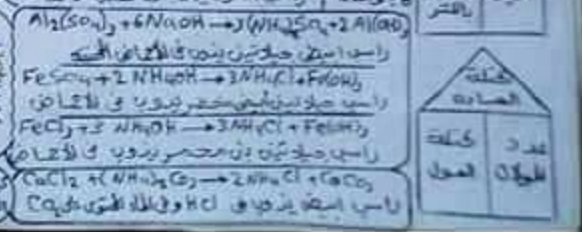 Al₂(SO₄)₃ + 6NaOH → 3(NH₄)₂SO₄ + 2Al(OH)₃
راسب ابيض جيلاتيني يذوب في الأحماض
FeSO₄ + 2NH₄OH → 3NH₄Cl + Fe(OH)₂
راسب جيلاتيني أبيض مخضر يذوب في الأحماض
FeCl₃ + 3NH₄OH → 3NH₄Cl + Fe(OH)₃
راسب جيلاتيني بني محمر يذوب في الأحماض
CaCl₂ + (NH₄)₂CO₃ → 2NH₄Cl + CaCO₃
راسب ابيض يذوب في HCl وفي الماء المحتوى على CO₂
كتلة
المادة
عدد المولات
كتلة المول